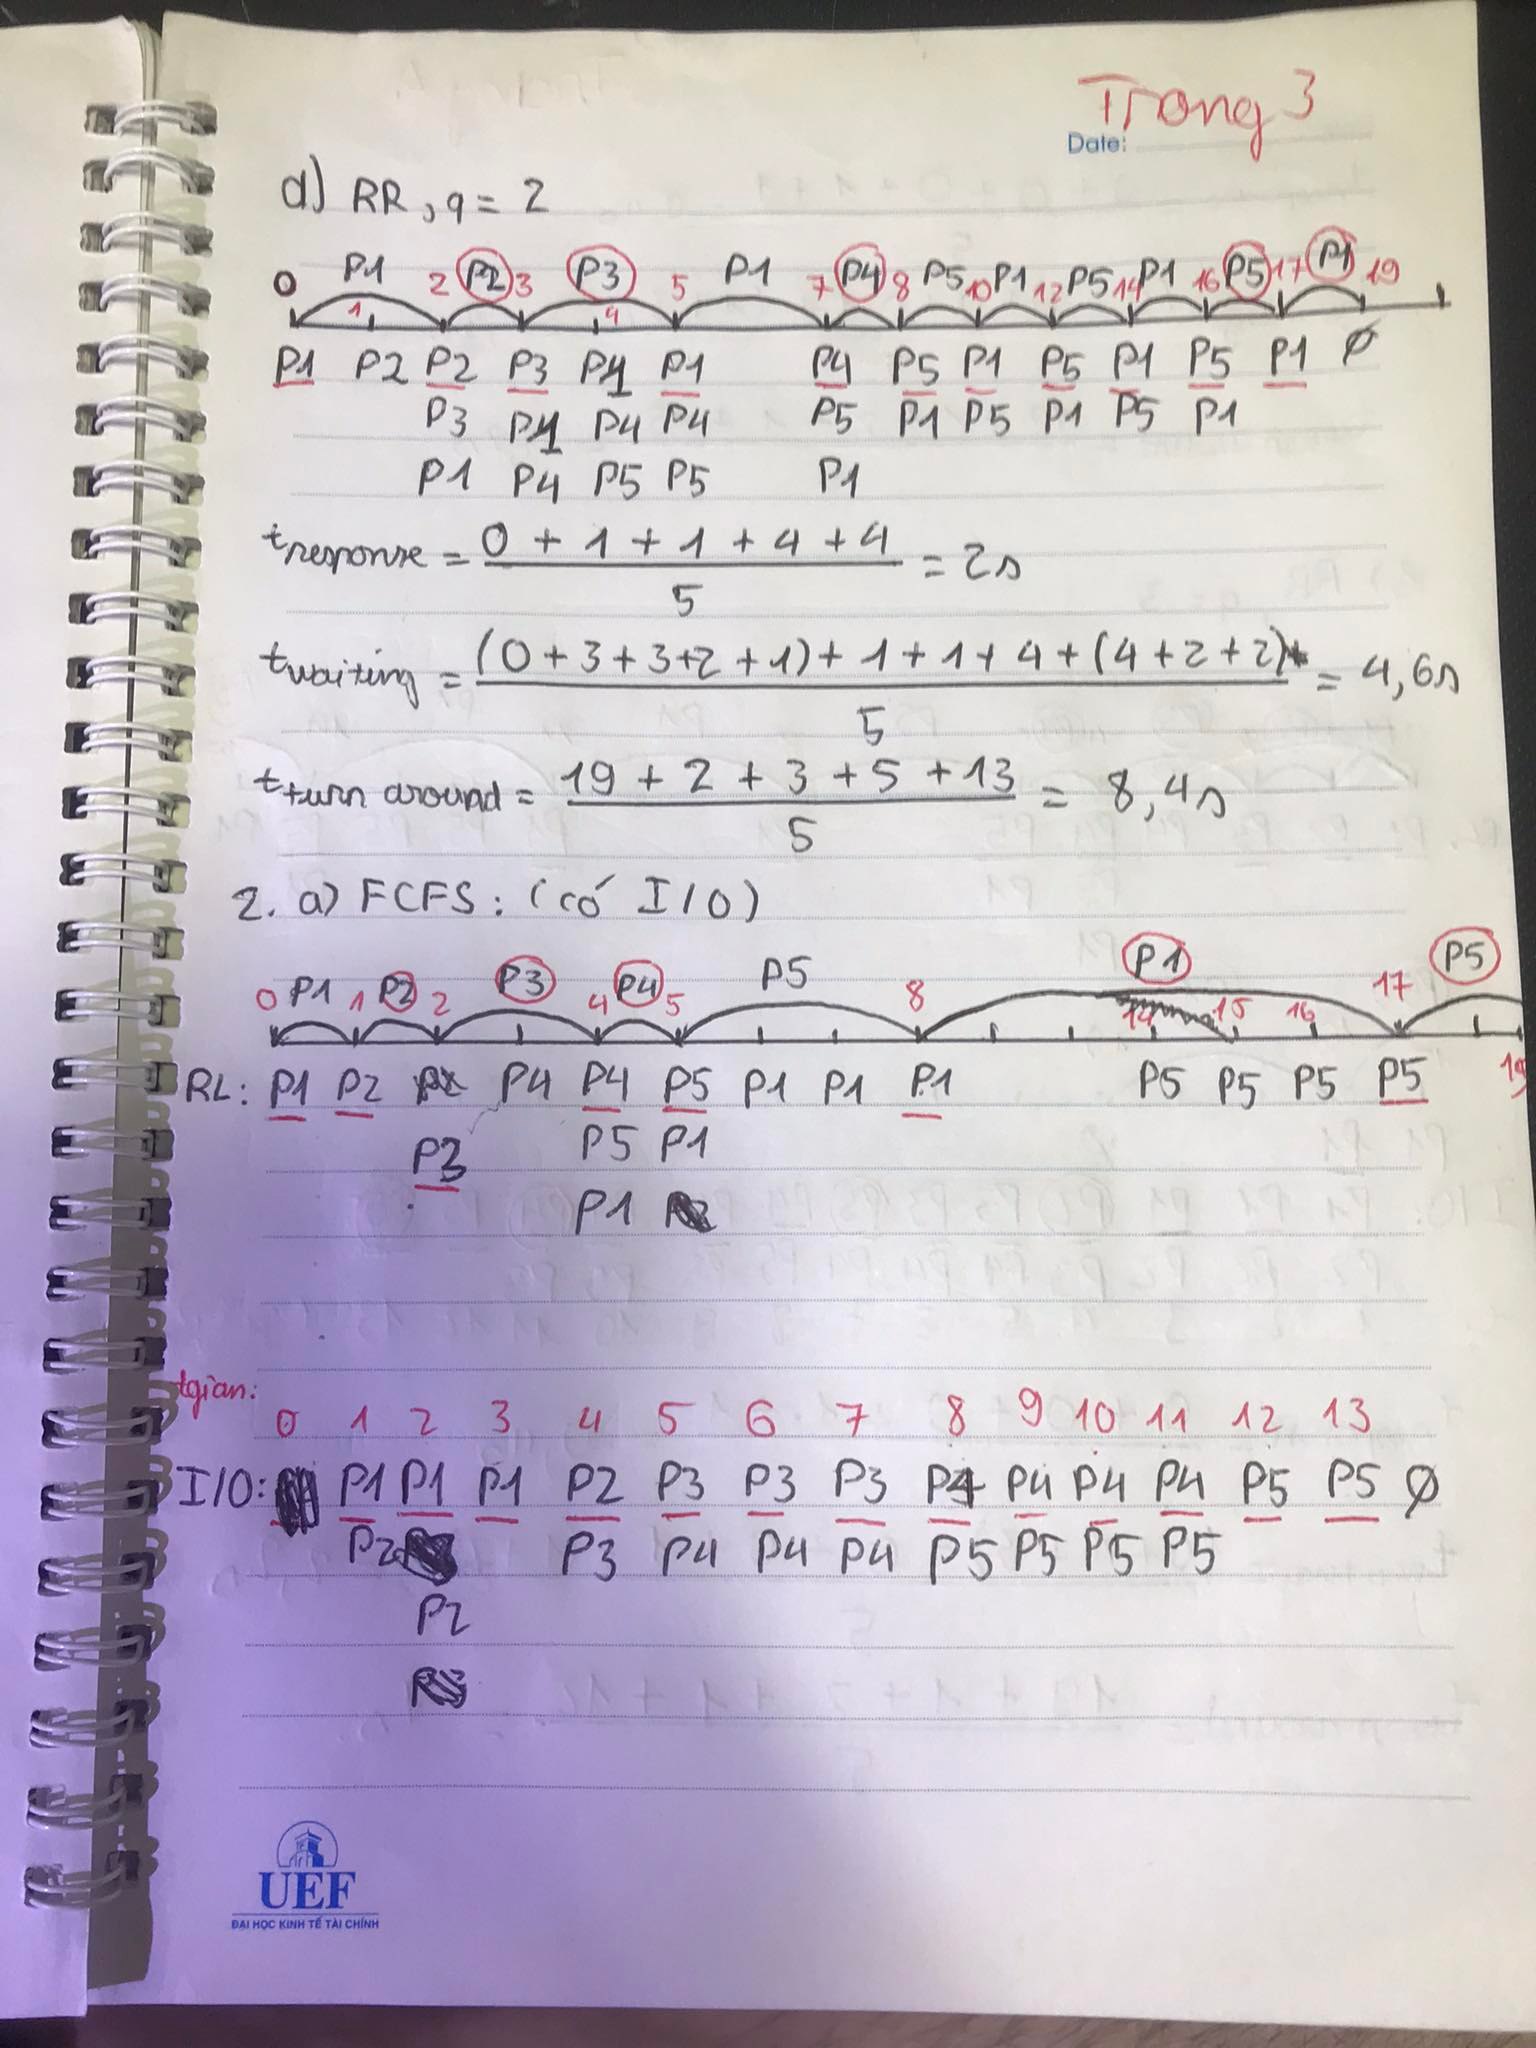 Trang 3
Date:
d) RR, q = 2
P1 P2 P3 P1 P4 P5 P1 P5 P1 P5 P1
0 1 2 3 4 5 7 8 10 12 14 16 17 19
P1 P2 P2 P3 P1 P1 P4 P5 P1 P5 P1 P5 P1 ∅
P3 P1 P4 P4 P5 P1 P5 P1 P5 P1
P1 P4 P5 P5 P1
tresponse = (0 + 1 + 1 + 4 + 4) / 5 = 2s
twaiting = ((0 + 3 + 3 + 2 + 1) + 1 + 1 + 4 + (4 + 2 + 2)) / 5 = 4,6s
tturn around = (19 + 2 + 3 + 5 + 13) / 5 = 8,4s
2. a) FCFS: (có I/O)
P1 P2 P3 P4 P5 P1 P5
0 1 2 4 5 8 14 15 16 17 19
RL: P1 P2 P4 P4 P5 P1 P1 P1 P5 P5 P5 P5
P3 P5 P1
P1
tgian:
0 1 2 3 4 5 6 7 8 9 10 11 12 13
I/O: P1 P1 P1 P2 P3 P3 P3 P4 P4 P4 P4 P5 P5 ∅
P2 P3 P4 P4 P4 P5 P5 P5 P5
P2
UEF
ĐẠI HỌC KINH TẾ TÀI CHÍNH